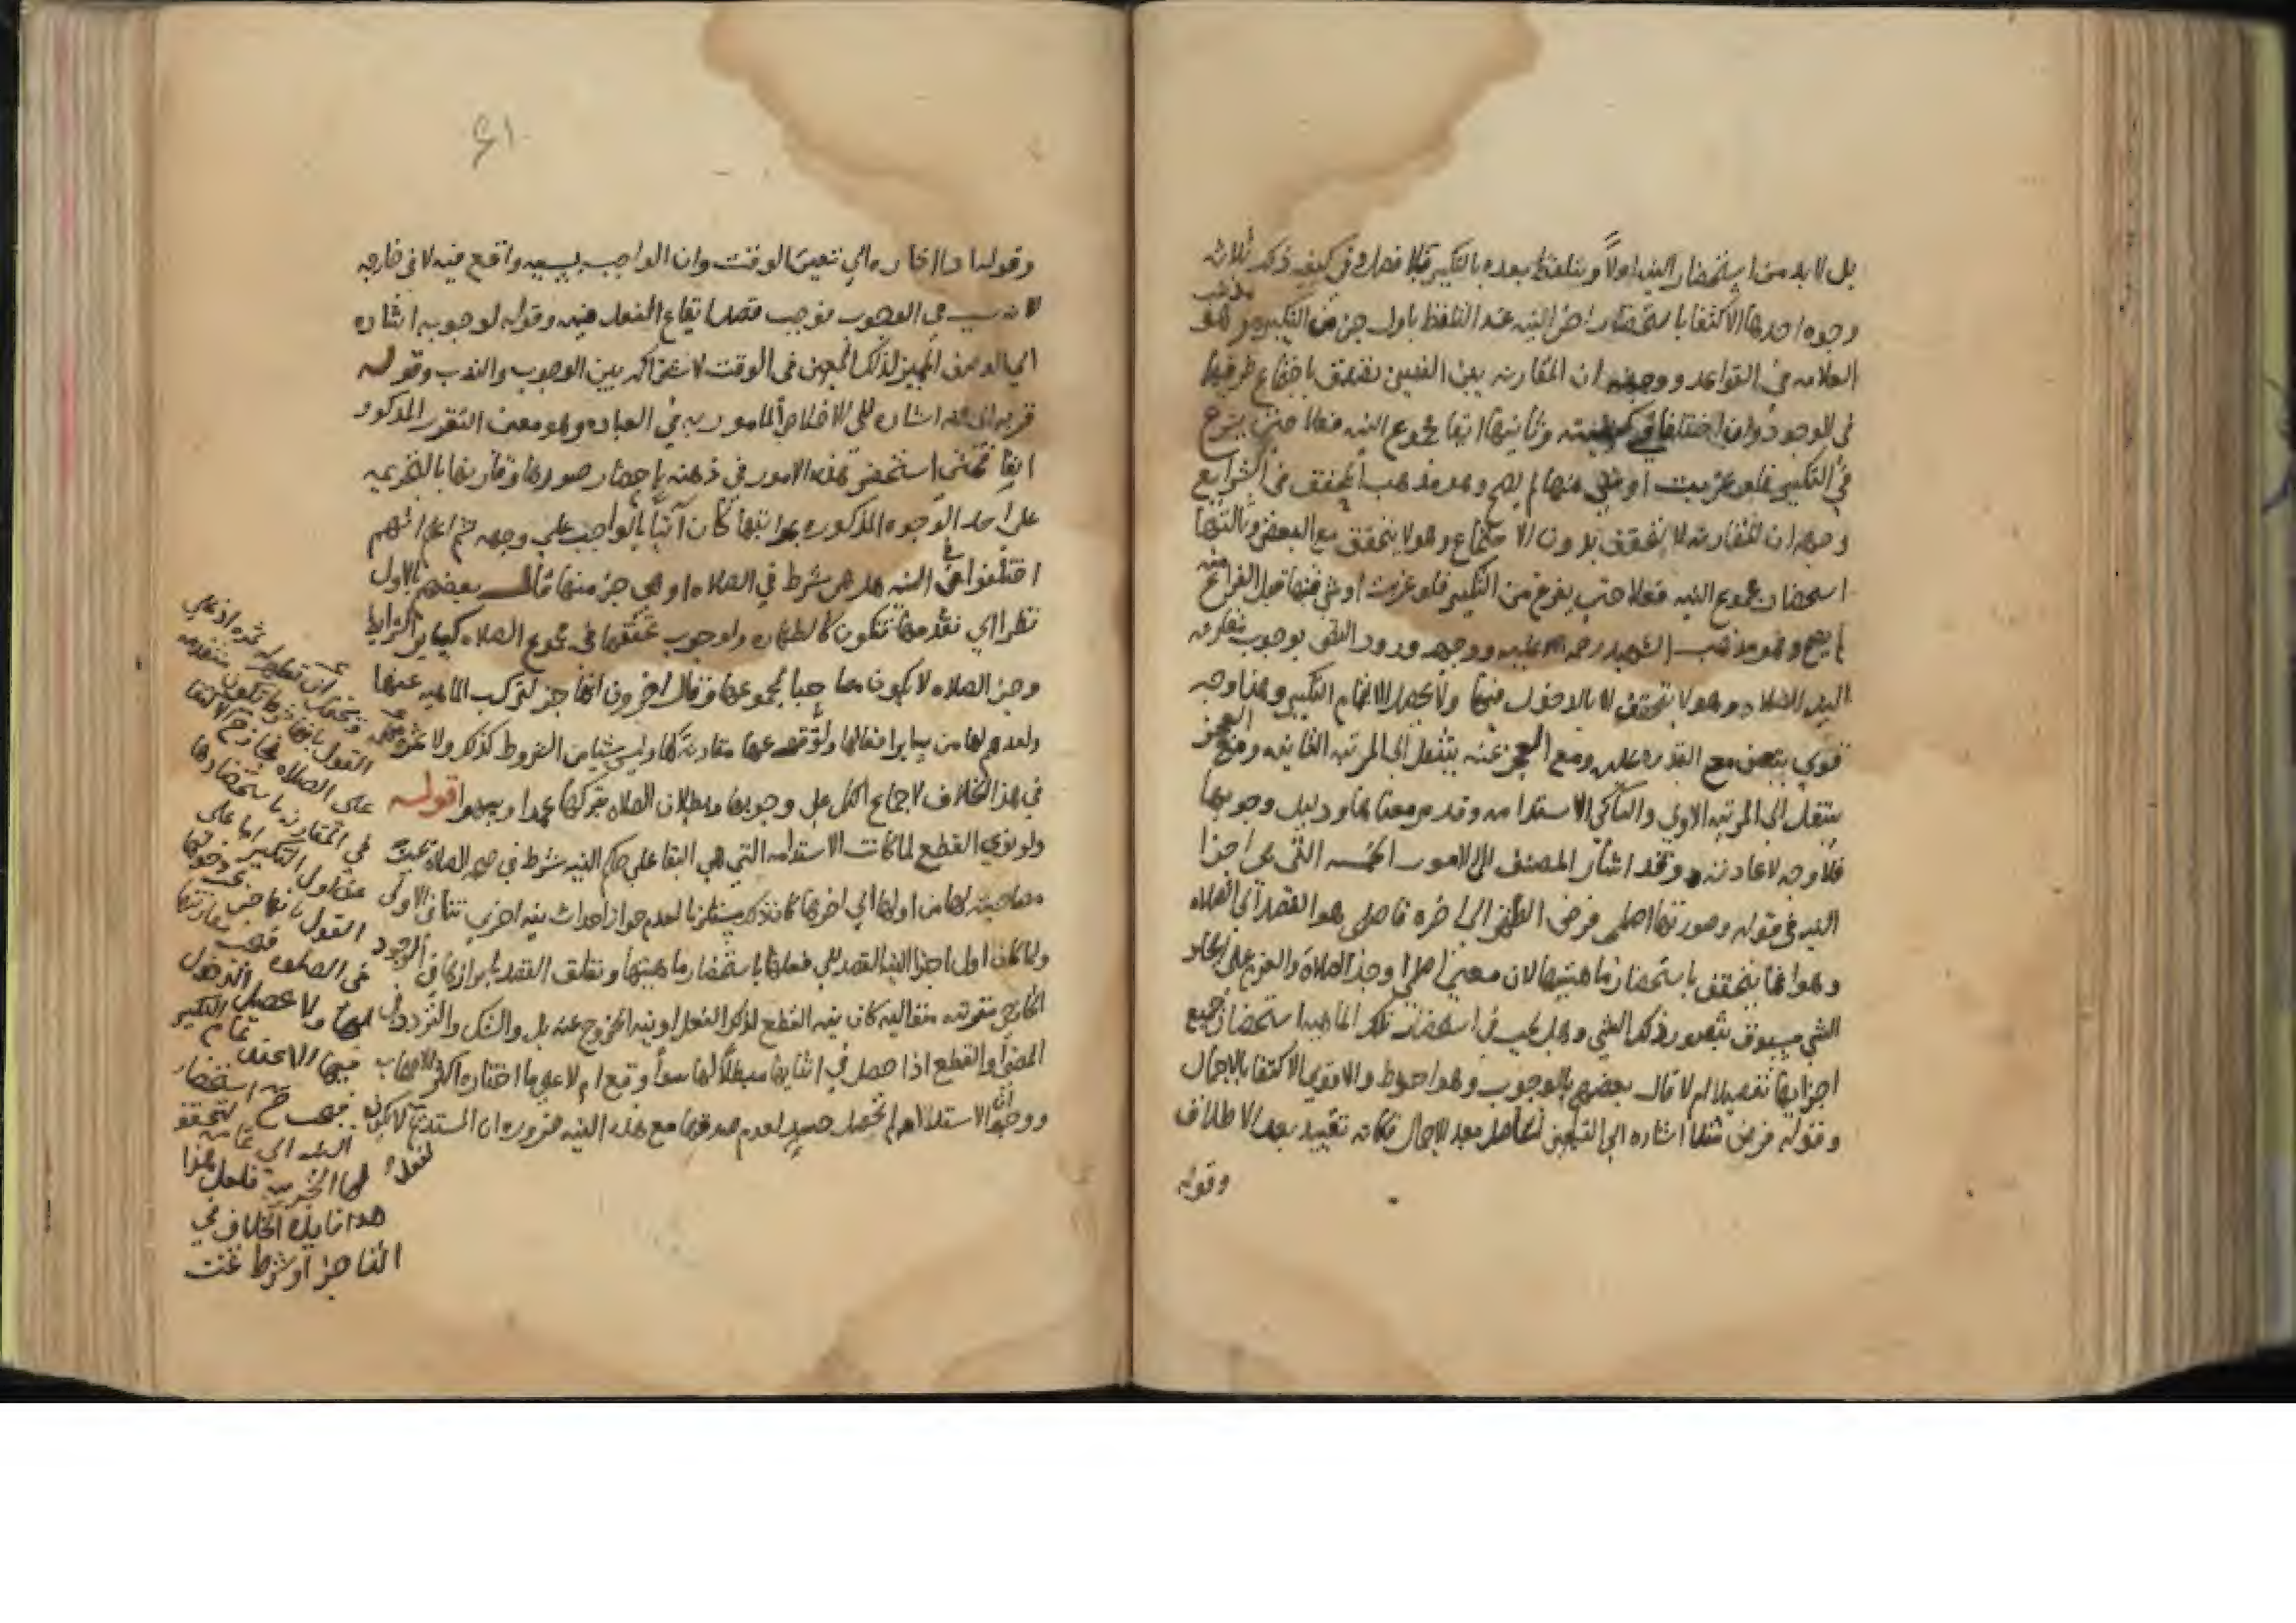 بل لابد من استحضار النيه اولاً ويتلفظ بعده بالتكبير بلا فصل وفي كيفيه ذلك ثلاثه
وجوه احدها الاكتفا باستحضار اخر النيه عند التلفظ باول جزء من التكبير وهو مذهب
العلامه في القواعد ووجهه ان المقارنه بين الشيئين تصدق باجتماع طرفيهما
في الوجود وان اختلفا في وثانيها ابقا مجموع النيه فعلا حتى يشرع
في التكبير فلو عزبت او شي منها لم يصح وهو مذهب المحقق في الشرايع
وجهه ان المقارنه لا تتحقق بدون الاجتماع وهو لا يتحقق مع البعض وثالثها
استحضار مجموع النيه فعلا حتى يفرغ من التكبير فلو عزبت او شي منها قبل الفراغ منه
لم يصح وهو مذهب الشهيد رحمه الله ووجهه ورود النص بوجوب مقارنه
النيه للصلاه وهو لا يتحقق الا بالدخول فيها ولا يحصل الا بتمام التكبير وهذا وجه
قوي يتعين مع القدره عليه ومع العجز عنه ينتقل الى المرتبه الثانيه ومع العجز
ينتقل الى المرتبه الاولي والثالث الاستدامه وقد مر معناها ودليل وجوبها
فلا وجه لاعادته وقد اشار المصنف الى الامور الخمسه التي هي اجزا
النيه في قوله وصورتها اصلي فرض الظهر الى اخره فاصلي هو القصد الي الصلاه
وهو انما يتحقق باستحضار ماهيتها لان معنى اصلي اوجد الصلاه والعزم على ايجاد
الشي مسبوق بتصور ذلك الشي وهل يجب في استحضار تلك الماهيه استحضار جميع
اجزايها تفصيلا ام لا قال بعضهم بالوجوب وهو احوط والاقوي الاكتفا بالاجمال
وقوله فرض اشاره الي التعيين الحاصل بعد الاجمال فكانه تقييد بعد الاطلاق
وقوله
٤١
وقولنا اداء اشاره الي تعيين الوقت وان الواجب بسببه واقع فيه لا في خارجه
لانه سبب في الوجوب فوجب قصد ايقاع الفعل فيه وقوله لوجوبه اشاره
الي الوصف المميز لذلك المعين في الوقت لاشتراكه بين الوجوب والندب وقوله
قربه الى الله اشاره الى الاخلاص المامور به في العباده وهو معنى التقرر المذكور
ايقا فمتى استحضر هذه الامور في ذهنه باحضار صورها وقارنها بالتحريمه
على احد الوجوه المذكوره مراتبها كان آتياً بالواجب على وجهه ثم اعلم انهم
اختلفوا في النيه هل هي شرط في الصلاه او هي جزء منها قال بعضهم بالاول
نظرا الي تقدمها فتكون كالطهاره ولوجوب تحققها في مجموع الصلاه كساير الشرايط
وجزء الصلاه لا يكون مصاحبا لمجموعها وقال اخرون انها جزء لتركب الماهيه عنها
ولعدم لها من ساير افعالها ولوقوعها مقارنة لها وليس شيئا من الشروط كذلك ولا ثمره مهمه
في هذا الخلاف لاجماع الكل على وجوبها وبطلان الصلاه بتركها عمدا وسهوا قوله
ولو نوي القطع لما كانت الاستدامه التي هي البقا علي حكم النيه شرط في صحه الصلاه بحيث
مصاحبة لها من اولها الي اخرها كان ذلك مستلزما لعدم جواز احداث نيه اخرى تنافي الاولى
ولما كان اول اجزا النيه القصد الي فعلها باستحضار ماهيتها وتعلق القصد بابرازها في الوجود
الخارجي متقربه لله كان نيه القطع لذلك الفعل او نيه الخروج عنه بل والشك والتردد في
المضي والقطع اذا حصل في اثنايها مبطلاً لها سواً وقع ام لا على ما اختاره اكثر الاصحاب
ووجهه ان الاستدامه لم تحصل حينئذ لعدم صدقها مع هذه النيه ضروره ان المستديم لا يكون
لفعل
ويمكن ان تظهر له ثمره اذ على
القول بانها شرط تكون متقدمه
على الصلاه فجاز ح الاكتفا
في المقارنه باستحضارها
عند اول التكبير اما على
القول بانها جزء تحت دخولها
في الصلاه فيجب مقارنتها
لها ولا يحصل الدخول
فيها الا عند تمام التكبير
فيجب ح استحضار
النيه الى تمامه لتحقق
لها الجزييه فلعل هذا
هو فايده الخلاف في
انها جزء او شرط تمت